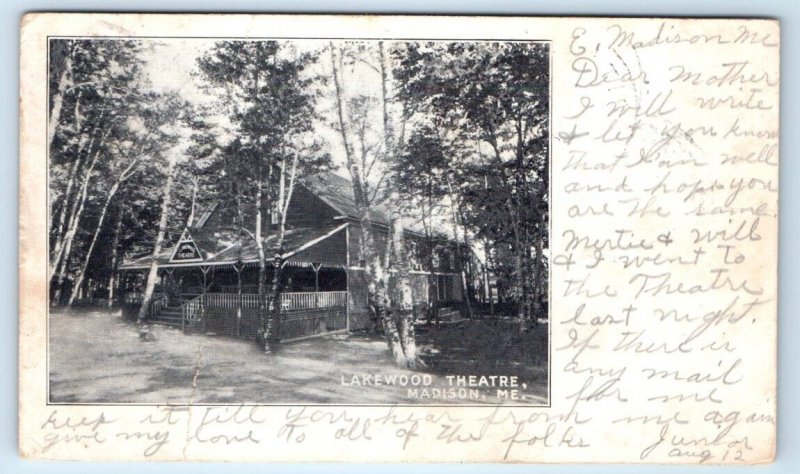 E. Madison Me
Dear Mother
I will write
& let you know
that I am well
and hope you
are the same.
Mertie & Will
& I went to
the Theatre
last night.
If there is
any mail
for me
keep it till you hear from me again
give my love to all of the folks Junior
aug 12
THEATRE
LAKEWOOD THEATRE,
MADISON, ME.